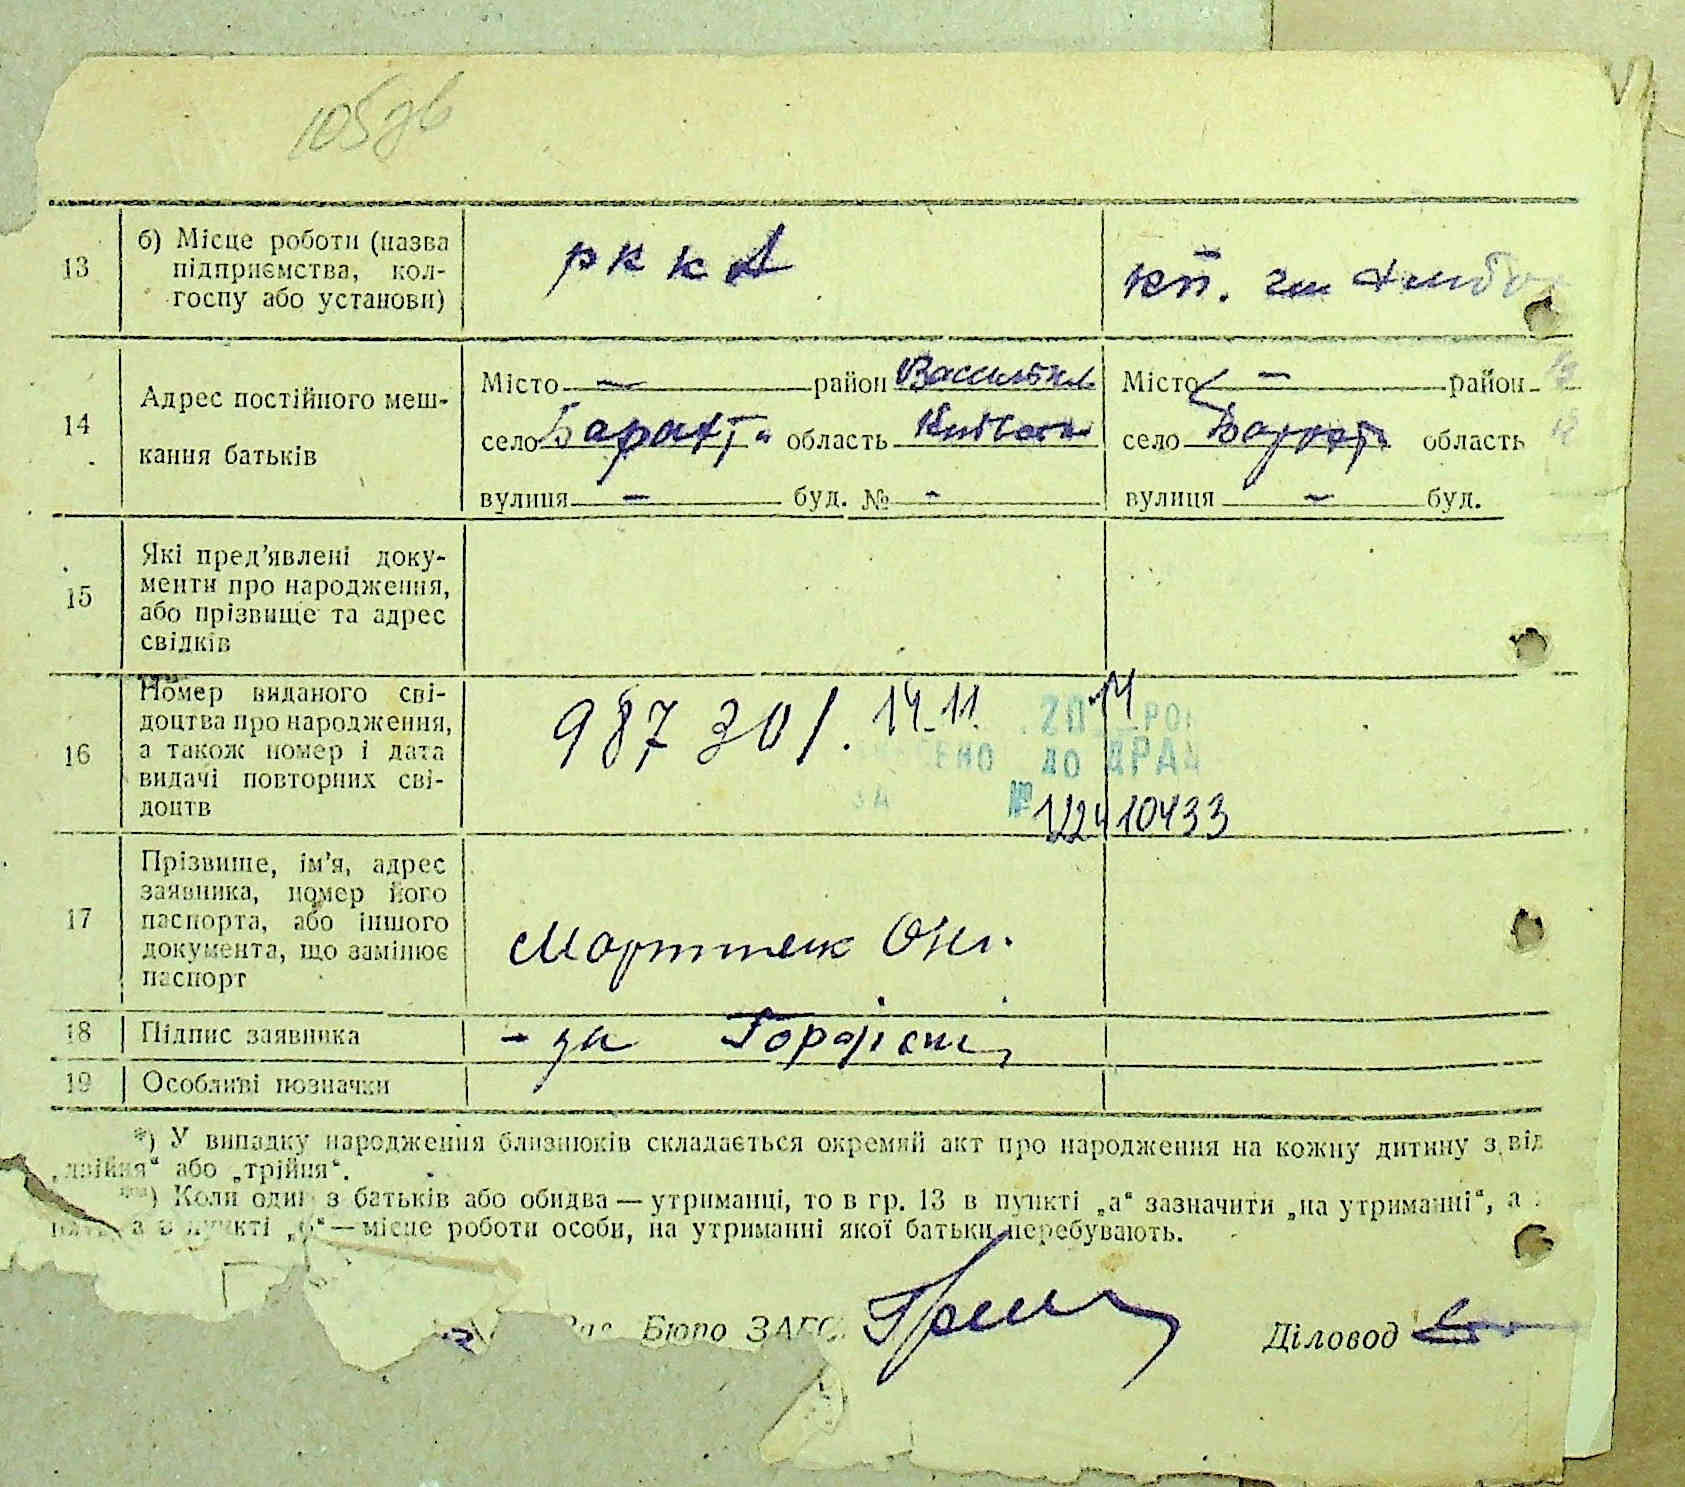 105зв
13
б) Місце роботи (назва
підприємства, кол-
госпу або установи)
РККА
кп. ім
14
Адрес постійного меш-
кання батьків
Місто — район Васильків
село Барахта область Київська
вулиця — буд. № -
Місто — район
село Барахта область
вулиця — буд.
15
Які пред’явлені доку-
менти про народження,
або прізвище та адрес
свідків
16
Номер виданого сві-
доцтва про народження,
а також номер і дата
видачі повторних сві-
доцтв
987301. 14.11. 2014 РОК
ЕНО ДО ДРАЦ
ЗА № 122410433
17
Прізвище, ім’я, адрес
заявника, номер його
паспорта, або іншого
документа, що замінює
паспорт
18
Підпис заявника
- за
19
Особливі позначки
*) У випадку народження близнюків складається окремий акт про народження на кожну дитину з від
„двійня“ або „трійня“.
**) Коли один з батьків або обидва — утриманці, то в гр. 13 в пункті „а“ зазначити „на утриманні“, а
а в пункті „б“ — місце роботи особи, на утриманні якої батьки перебувають.
Зав. Бюро ЗАГС
Діловод